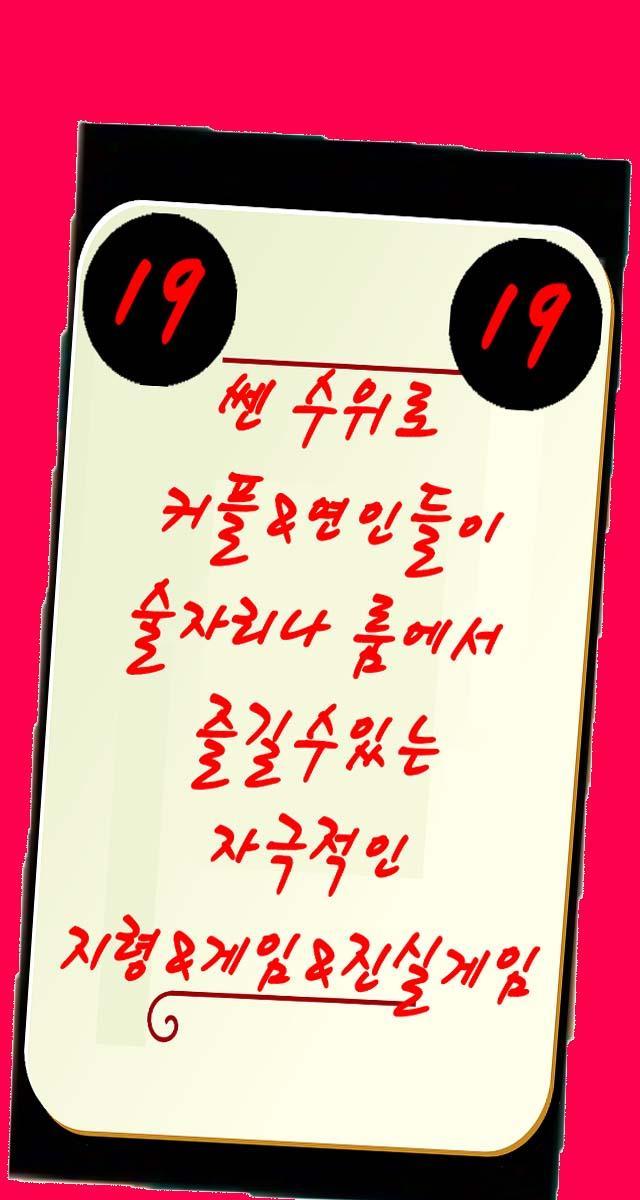 19 19
쎈 수위로
커플&연인들이
술자리나 룸에서
즐길수있는
자극적인
지령&게임&진실게임